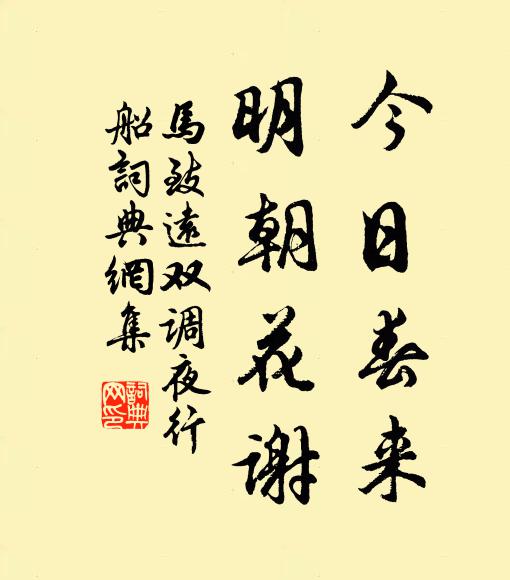 今日春来
明朝花谢
馬致遠双调夜行
船詞典網集
詞典
网印